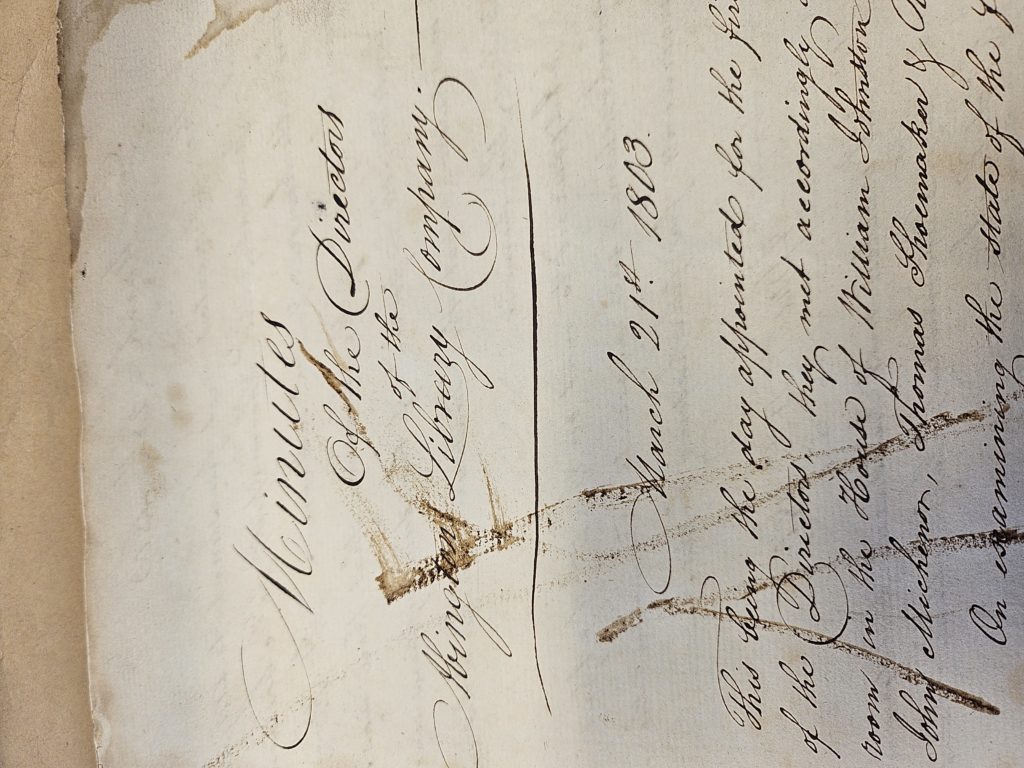 Minutes
Of the Directors
of the
Abington Library Company. —
March 21st. 1803.
This being the day appointed for the
of the Directors, they met accordingly
room in the House of William Johnston
John Michenor, Thomas Shoemaker &
On examining the state of the